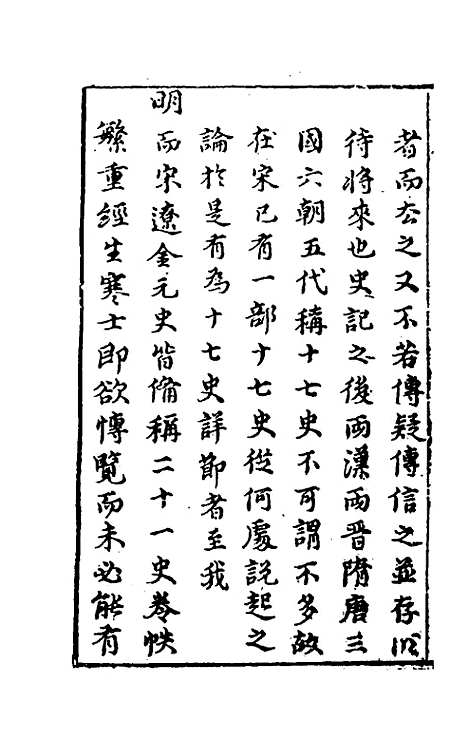 者而去之又不若傳疑傳信之並存以
待將來也史記之後兩漢兩晉隋唐三
國六朝五代稱十七史不可謂不多故
在宋已有一部十七史從何處說起之
論於是有為十七史詳節者至我
明而宋遼金元史皆備稱二十一史卷帙
繁重經生寒士即欲博覽而未必能有